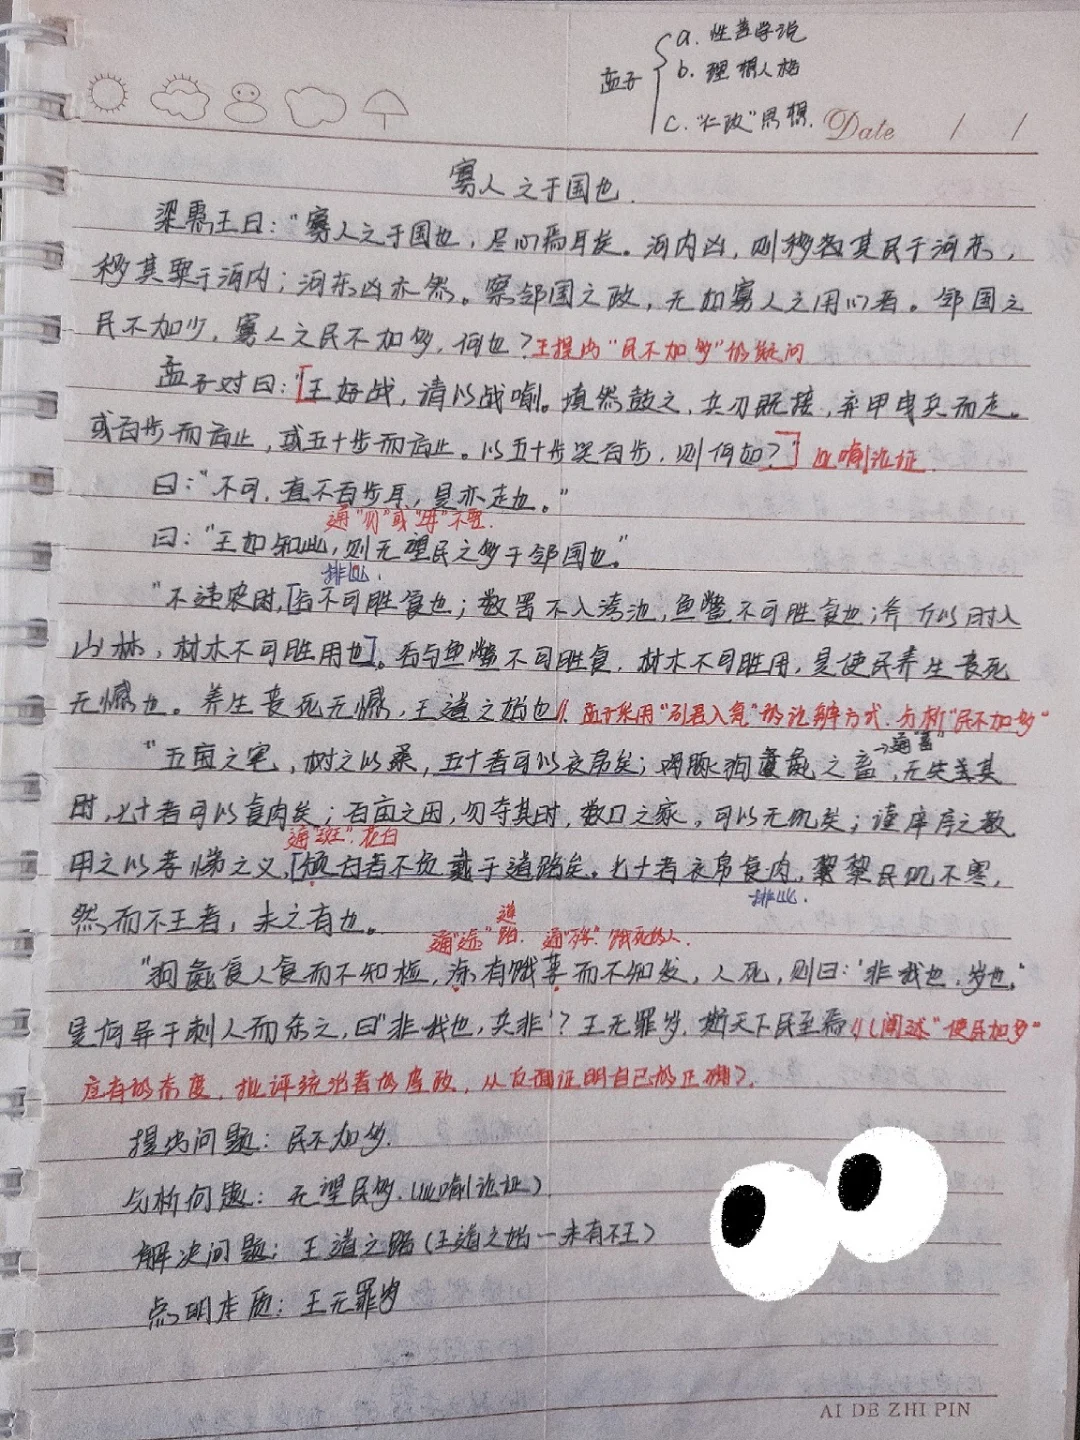 a. 性善学说
孟子 b. 理想人格
c. "仁政"思想.
Date / /
寡人之于国也.
梁惠王曰："寡人之于国也，尽心焉耳矣。河内凶，则移其民于河东，
移其粟于河内；河东凶亦然。察邻国之政，无如寡人之用心者。邻国之
民不加少，寡人之民不加多，何也？王提出"民不加多"的疑问
孟子对曰："[王好战，请以战喻。填然鼓之，兵刃既接，弃甲曳兵而走。
或百步而后止，或五十步而后止。以五十步笑百步，则何如？"] 比喻论证.
曰："不可，直不百步耳，是亦走也。"
通"勿"或"毋"不要.
曰："王如知此，则无望民之多于邻国也。"
排比.
"不违农时，[谷不可胜食也；数罟不入洿池，鱼鳖不可胜食也；斧斤以时入
山林，材木不可胜用也]。谷与鱼鳖不可胜食，材木不可胜用，是使民养生丧死
无憾也。养生丧死无憾，王道之始也//. 孟子采用"引君入瓮"的论辩方式.分析"民不加多"
→通"蓄"
"五亩之宅，树之以桑，五十者可以衣帛矣；鸡豚狗彘之畜，无失其
时，七十者可以食肉矣；百亩之田，勿夺其时，数口之家，可以无饥矣；谨庠序之教，
通"斑".花白
申之以孝悌之义，[颁白者不负戴于道路矣。七十者衣帛食肉，黎民不饥不寒，
排比.
然而不王者，未之有也。
通"途" 道路. 通"殍".饿死的人.
"狗彘食人食而不知检，涂有饿莩而不知发，人死，则曰：'非我也，岁也.'
是何异于刺人而杀之，曰'非我也，兵非'？王无罪岁，斯天下民至焉//(阐述"使民加多"
应有的态度，批评统治者的虐政，从反面证明自己的正确).
提出问题：民不加多.
分析问题：无望民多.(比喻论证)
解决问题：王道之路(王道之始—未有不王)
点明本质：王无罪岁
AI DE ZHI PIN